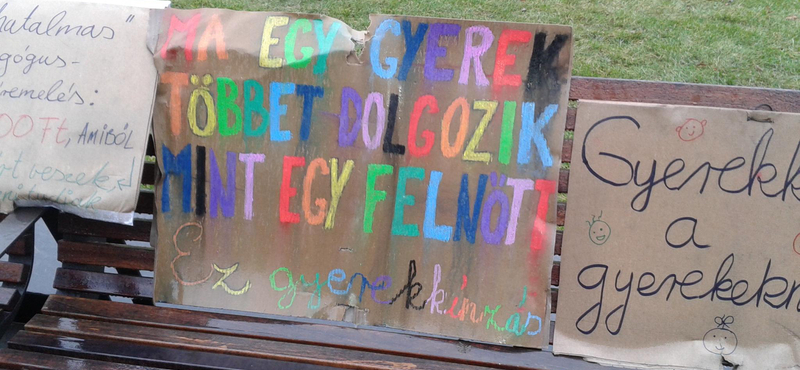 hatalmas"
gógus-
emelés:
00 Ft, AMIBŐL
veszek
MA EGY GYEREK
TÖBBET DOLGOZIK
MINT EGY FELNŐTT
Ez gyerekkínzás
Gyerekk
a
gyerekekn